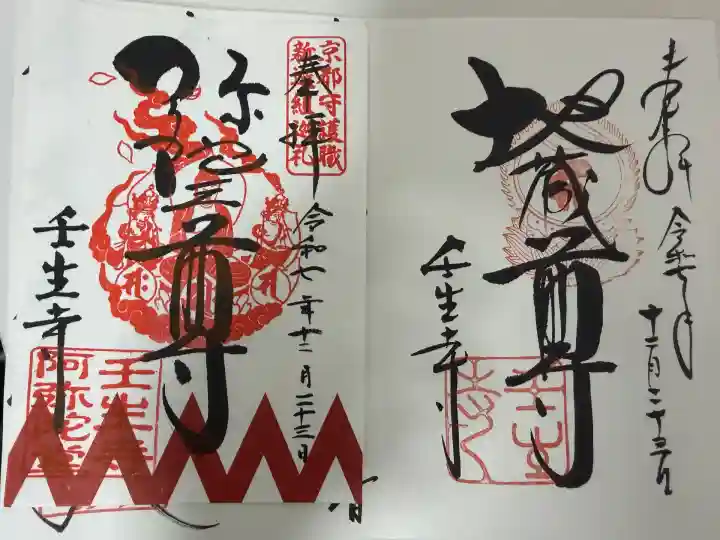 奉拝
地蔵尊
壬生寺
令和七年
十二月二十三日
京都守護職
新選組巡礼
奉拝
令和七年十二月二十三日
弥陀三尊
壬生寺
壬生寺
阿弥陀堂